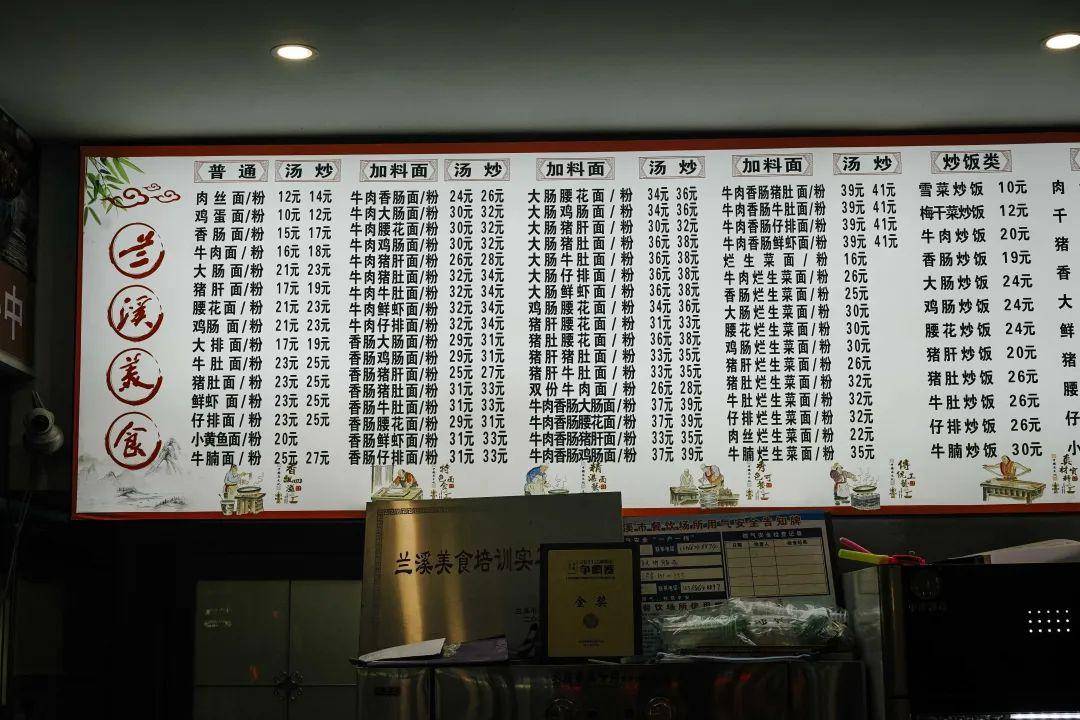 兰溪美食
普通 汤 炒
肉丝面/粉 12元 14元
鸡蛋面/粉 10元 12元
香肠面/粉 15元 17元
牛肉面/粉 16元 18元
大肠面/粉 21元 23元
猪肝面/粉 17元 19元
腰花面/粉 21元 23元
鸡肠面/粉 21元 23元
大排面/粉 17元 19元
牛肚面/粉 23元 25元
猪肚面/粉 23元 25元
鲜虾面/粉 23元 25元
仔排面/粉 23元 25元
小黄鱼面/粉 20元
牛腩面/粉 25元 27元
加料面 汤 炒
牛肉香肠面/粉 24元 26元
牛肉大肠面/粉 30元 32元
牛肉腰花面/粉 30元 32元
牛肉鸡肠面/粉 30元 32元
牛肉猪肝面/粉 26元 28元
牛肉猪肚面/粉 32元 34元
牛肉牛肚面/粉 32元 34元
牛肉鲜虾面/粉 32元 34元
牛肉仔排面/粉 32元 34元
香肠大肠面/粉 29元 31元
香肠鸡肠面/粉 29元 31元
香肠猪肝面/粉 25元 27元
香肠猪肚面/粉 31元 33元
香肠牛肚面/粉 31元 33元
香肠腰花面/粉 29元 31元
香肠鲜虾面/粉 31元 33元
香肠仔排面/粉 31元 33元
加料面 汤 炒
大肠腰花面/粉 34元 36元
大肠鸡肠面/粉 34元 36元
大肠猪肝面/粉 34元 36元
大肠猪肚面/粉 36元 38元
大肠牛肚面/粉 36元 38元
大肠仔排面/粉 36元 38元
大肠鲜虾面/粉 36元 38元
鸡肠腰花面/粉 34元 36元
猪肝腰花面/粉 31元 33元
猪肚腰花面/粉 36元 38元
猪肝猪肚面/粉 33元 35元
猪肝牛肚面/粉 33元 35元
双份牛肉面/粉 26元 28元
牛肉香肠大肠面/粉 37元 39元
牛肉香肠腰花面/粉 37元 39元
牛肉香肠猪肝面/粉 33元 35元
牛肉香肠鸡肠面/粉 37元 39元
加料面 汤 炒
牛肉香肠猪肚面/粉 39元 41元
牛肉香肠牛肚面/粉 39元 41元
牛肉香肠仔排面/粉 39元 41元
牛肉香肠鲜虾面/粉 39元 41元
烂生菜面/粉 16元
牛肉烂生菜面/粉 26元
香肠烂生菜面/粉 25元
大肠烂生菜面/粉 30元
腰花烂生菜面/粉 30元
鸡肠烂生菜面/粉 30元
猪肝烂生菜面/粉 26元
猪肚烂生菜面/粉 32元
牛肚烂生菜面/粉 32元
仔排烂生菜面/粉 32元
肉丝烂生菜面/粉 22元
牛腩烂生菜面/粉 35元
炒饭类
雪菜炒饭 10元
梅干菜炒饭 12元
牛肉炒饭 20元
香肠炒饭 19元
大肠炒饭 24元
鸡肠炒饭 24元
腰花炒饭 24元
猪肝炒饭 20元
猪肚炒饭 26元
牛肚炒饭 26元
仔排炒饭 26元
牛腩炒饭 30元
肉
千
猪
香
大
中
兰溪美食培训实
金奖
溪市餐饮场所用气安全告知牌